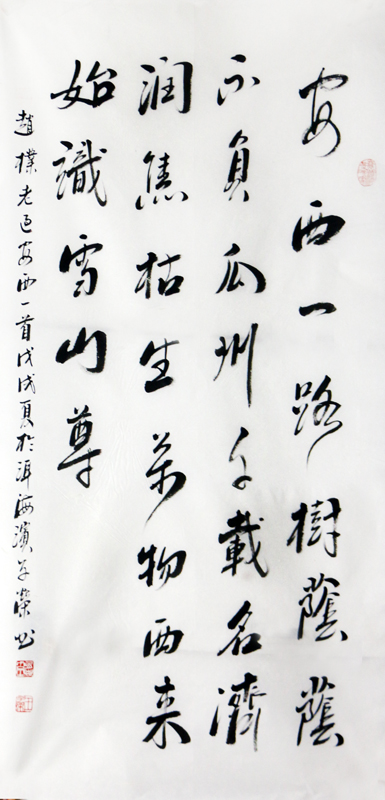 安西一路樹蔭蔭
不負瓜州千載名濟
潤焦枯生萬物西来
始識雪山尊
趙樸老過安西一首戊戌夏於洱海濱子榮书